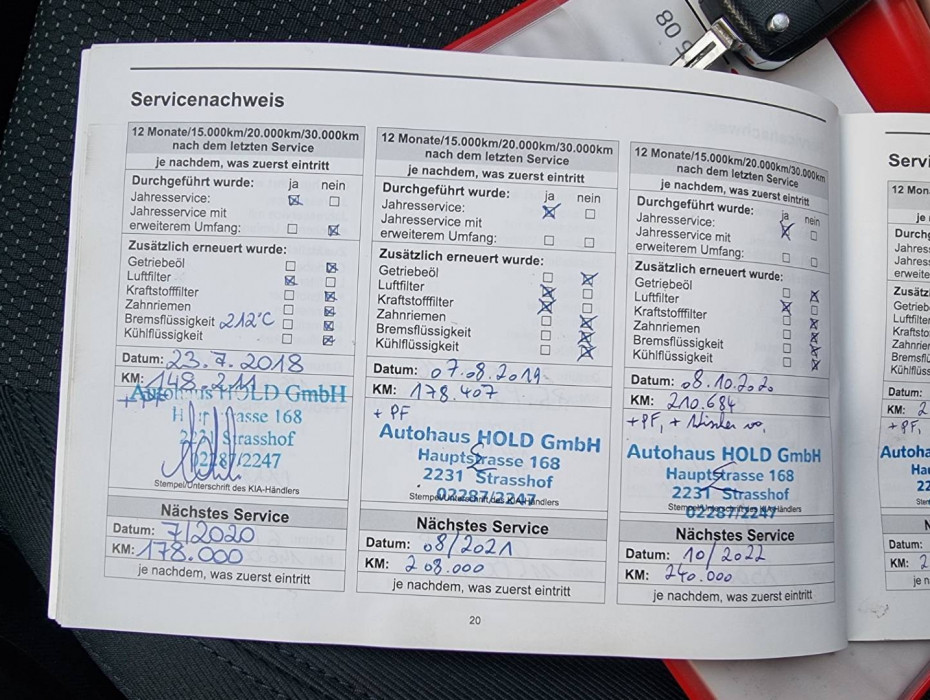 5 08
Servicenachweis
12 Monate/15.000km/20.000km/30.000km
nach dem letzten Service
je nachdem, was zuerst eintritt
Durchgeführt wurde: ja nein
Jahresservice:
Jahresservice mit
erweiterem Umfang:
Zusätzlich erneuert wurde:
Getriebeöl
Luftfilter
Kraftstofffilter
Zahnriemen
Bremsflüssigkeit 212°C
Kühlflüssigkeit
Datum: 23.7.2018
KM: 148.211
+ PF
Autohaus HOLD GmbH
Hauptstrasse 168
2231 Strasshof
02287/2247
Stempel/Unterschrift des KIA-Händlers
Nächstes Service
Datum: 7/2020
KM: 178.000
je nachdem, was zuerst eintritt
12 Monate/15.000km/20.000km/30.000km
nach dem letzten Service
je nachdem, was zuerst eintritt
Durchgeführt wurde: ja nein
Jahresservice:
Jahresservice mit
erweiterem Umfang:
Zusätzlich erneuert wurde:
Getriebeöl
Luftfilter
Kraftstofffilter
Zahnriemen
Bremsflüssigkeit
Kühlflüssigkeit
Datum: 07.08.2019
KM: 178.407
+ PF
Autohaus HOLD GmbH
Hauptstrasse 168
2231 Strasshof
02287/2247
Stempel/Unterschrift des KIA-Händlers
Nächstes Service
Datum: 08/2021
KM: 208.000
je nachdem, was zuerst eintritt
12 Monate/15.000km/20.000km/30.000km
nach dem letzten Service
je nachdem, was zuerst eintritt
Durchgeführt wurde: ja nein
Jahresservice:
Jahresservice mit
erweiterem Umfang:
Zusätzlich erneuert wurde:
Getriebeöl
Luftfilter
Kraftstofffilter
Zahnriemen
Bremsflüssigkeit
Kühlflüssigkeit
Datum: 08.10.2020
KM: 210.684
+ PF, +
Autohaus HOLD GmbH
Hauptstrasse 168
2231 Strasshof
02287/2247
Stempel/Unterschrift des KIA-Händlers
Nächstes Service
Datum: 10/2022
KM: 240.000
je nachdem, was zuerst eintritt
20
Servi
12 Mon
je
Durchg
Jahres
Jahres
erweite
Zusätz
Getrieb
Luftfilte
Kraftsto
Zahnrie
Bremsfl
Kühlflü
Datum:
KM: 2
+ PF,
Autoha
Ha
22
Datum:
KM: 2
je n